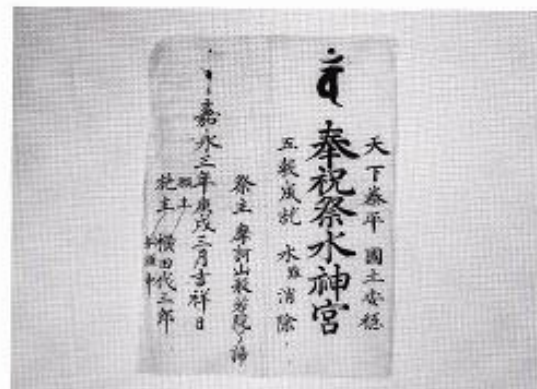 天下泰平 國土安穏
奉祝祭水神宮
五穀成就 水難消除
祭主 摩訶山般若院
嘉永三年庚戌三月吉祥日
施主 横田代三郎